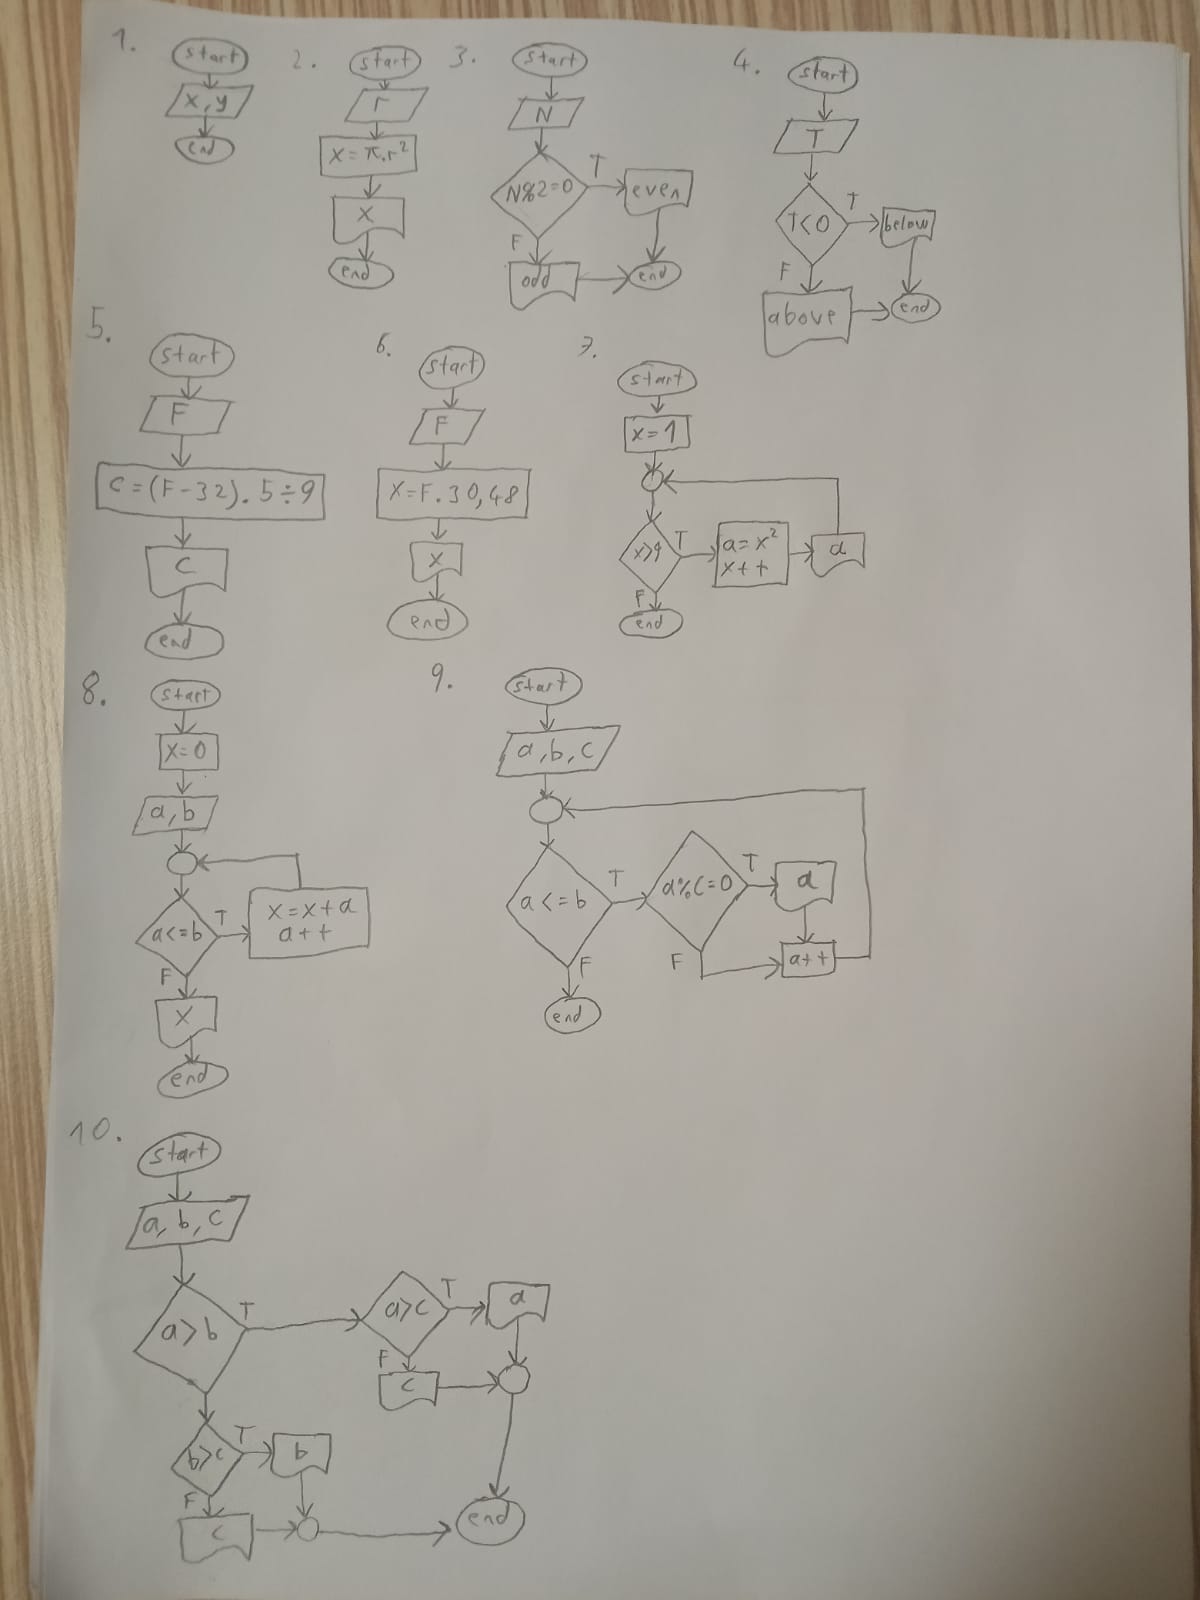 1.
start
x, y
end
2.
start
r
x = π.r²
x
end
3.
start
N
N%2=0
T
even
F
odd
end
4.
start
T
T<0
T
below
F
above
end
5.
start
F
C=(F-32).5÷9
C
end
6.
start
F
x=F.30,48
x
end
7.
start
x=1
T
a=x²
x++
a
F
end
8.
start
x=0
a,b
a<=b
T
x=x+a
a++
F
x
end
9.
start
a,b,c
a<=b
T
a%c=0
T
a
F
a++
F
end
10.
start
a, b, c
a>b
T
a>c
T
a
F
c
b>c
T
b
F
c
end